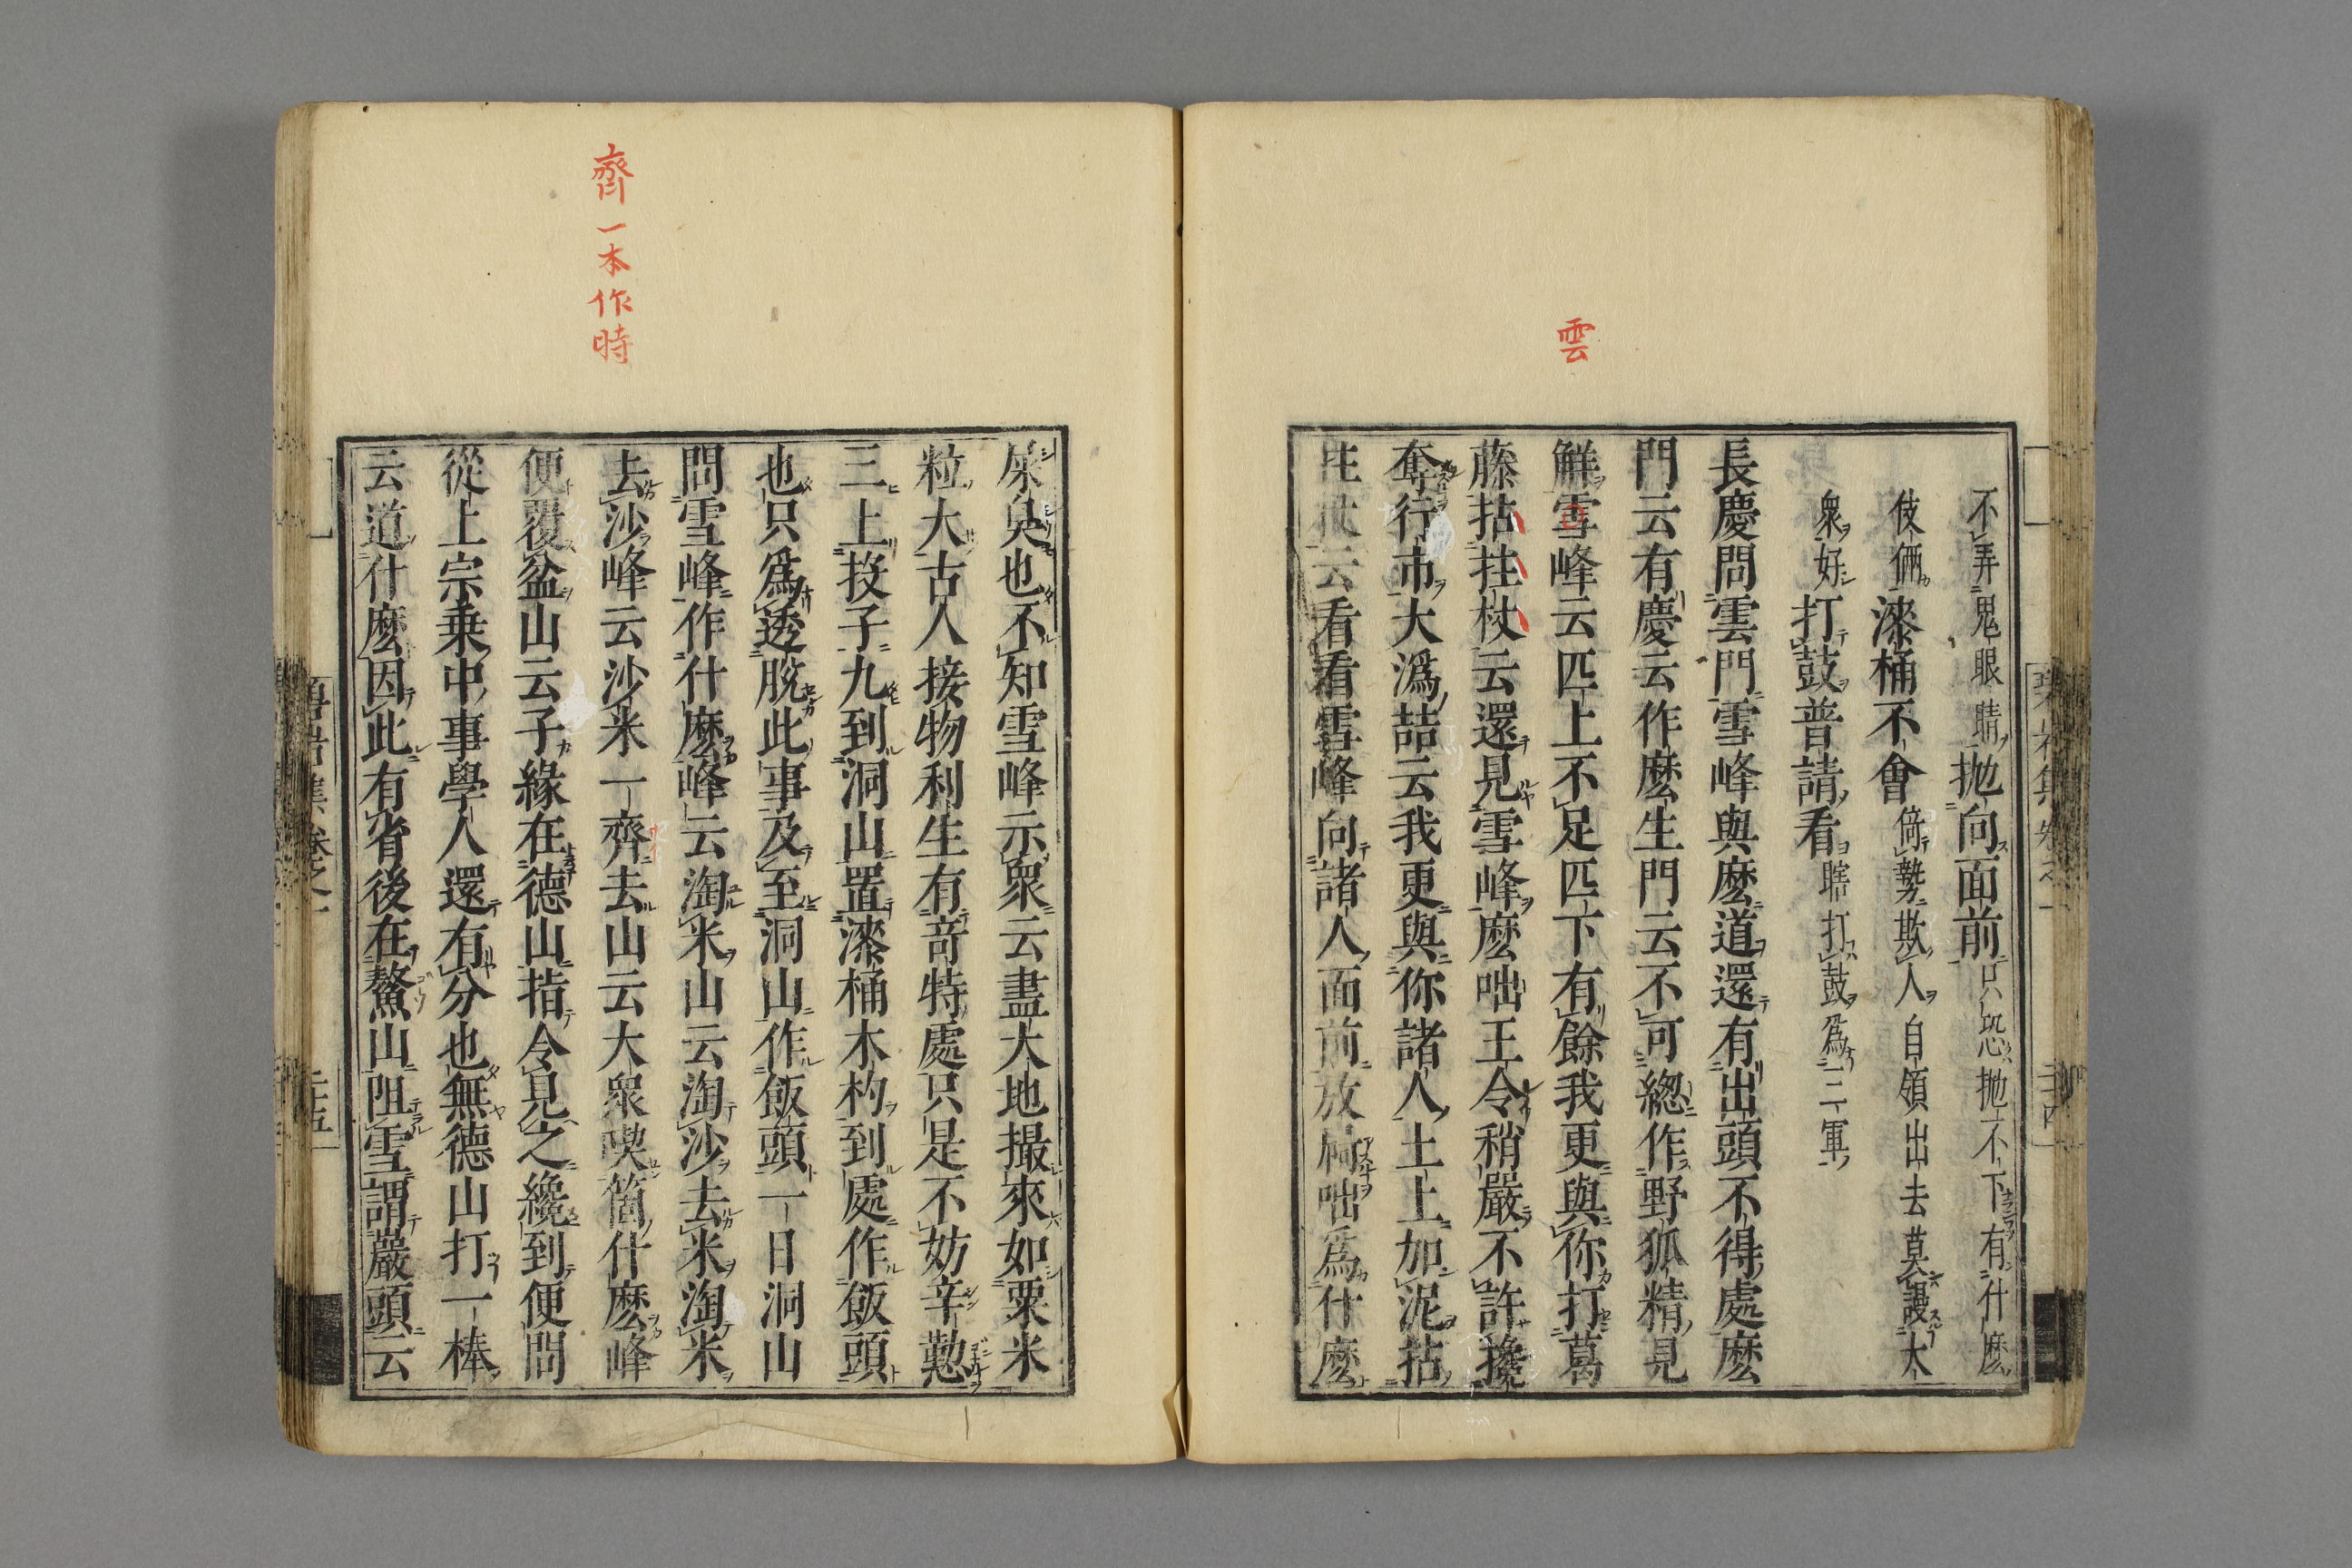 雲
不弄鬼眼睛抛向面前只恐抛不下有什麽
伎倆漆桶不會倚勢欺人自領出去莫謾大
衆好打鼓普請看瞎打鼓爲三軍
長慶問雲門雪峰與麽道還有出頭不得處麽
門云有慶云作麽生門云不可總作野狐精見
解雪峰云匹上不足匹下有餘我更與你打葛
藤拈拄杖云還見雪峰麽咄王令稍嚴不許攙
奪行市大潙喆云我更與你諸人土上加泥拈
拄杖云看看雪峰向諸人面前放屙咄爲什麽
齊一本作時
屎臭也不知雪峰示衆云盡大地撮來如粟米
粒大古人接物利生有奇特處只是不妨辛懃
三上投子九到洞山置漆桶木杓到處作飯頭
也只爲透脫此事及至洞山作飯頭一日洞山
問雪峰作什麽峰云淘米山云淘沙去米淘米
去沙峰云沙米一齊去山云大衆喫箇什麽峰
便覆盆山云子緣在德山指令見之纔到便問
從上宗乘中事學人還有分也無德山打一棒
云道什麽因此有省後在鰲山阻雪謂巖頭云